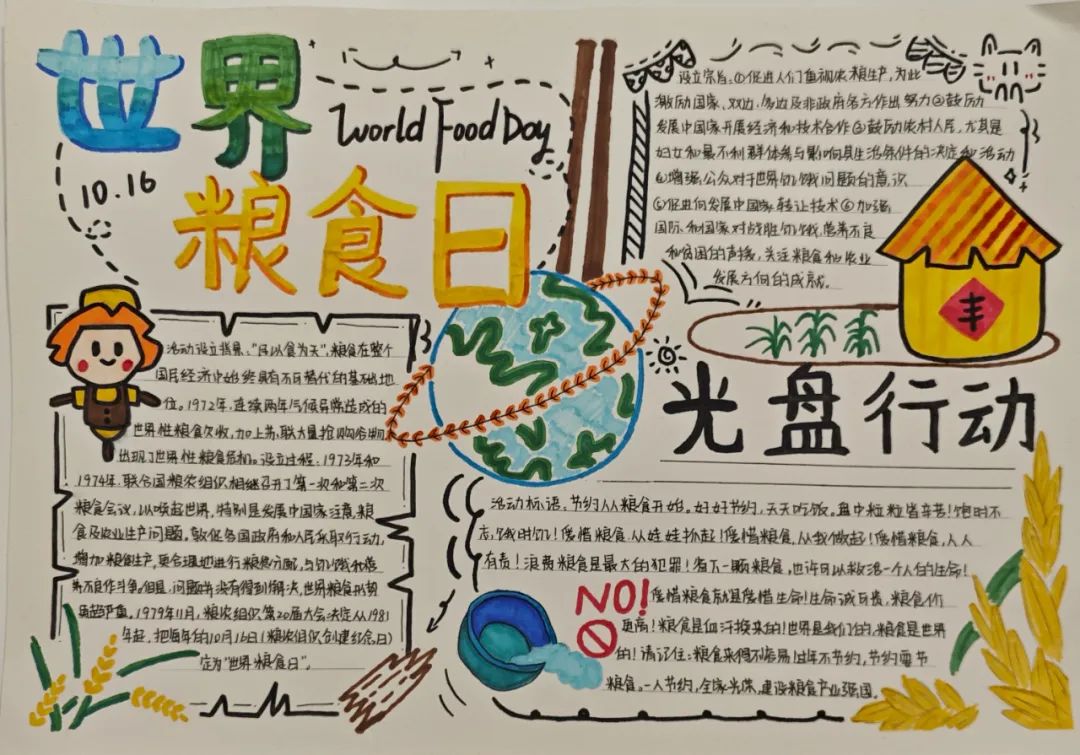 世界
World Food Day
10.16
粮食日
设立宗旨:①促进人们重视农粮生产,为此
激励国家、双边、多边及非政府各方作出努力②鼓励
发展中国家开展经济和技术合作③鼓励农村人民,尤其是
妇女和最不利群体参与影响其生活条件的决定和活动
④增强公众对于世界饥饿问题的意识
⑤促进向发展中国家转让技术⑥加强
国际和国家对战胜饥饿、营养不良
和贫困的声援,关注粮食和农业
发展方向的成就。
丰
活动设立背景:“民以食为天”,粮食在整个
国民经济中始终具有不可替代的基础地
位。1972年,连续两年气候异常造成的
世界性粮食欠收,加上苏联大量抢购谷物
出现了世界性粮食危机。设立过程:1973年和
1974年,联合国粮农组织相继召开了第一次和第二次
粮食会议,以唤起世界,特别是发展中国家注意粮
食及农业生产问题,敦促各国政府和人民采取行动,
增加粮食生产,更合理地进行粮食分配,与饥饿和营
养不良作斗争。但是,问题并没有得到解决,世界粮食形势
更趋严重。1979年11月,粮农组织第20届大会决定从1981
年起,把每年的10月16日(粮农组织创建纪念日)
定为“世界粮食日”。
光盘行动
活动标语:节约从粮食开始。好好节约,天天吃饭。盘中粒粒皆辛苦!饱时不
忘饿时饥!爱惜粮食,从娃娃抓起!爱惜粮食,从我做起!爱惜粮食,人人
有责!浪费粮食是最大的犯罪!省下一颗粮食,也许可以救活一个人的生命!
NO!
爱惜粮食就是爱惜生命!生命诚可贵,粮食价
更高!粮食是血汗换来的!世界是我们的,粮食是世界
的!请记住:粮食来得不容易
粮食。一人节约,全家光荣,建设粮食产业强国。